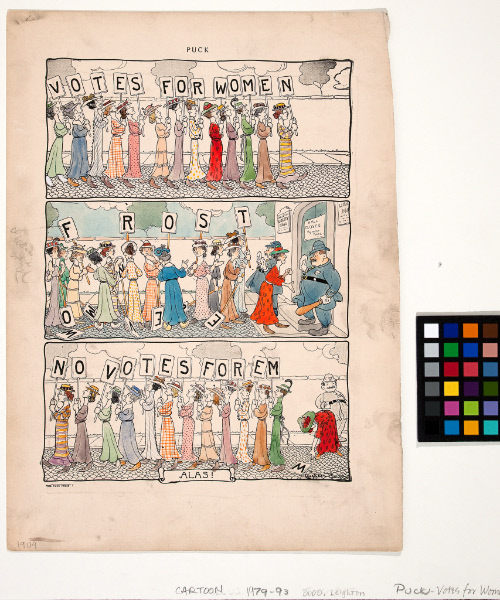 PUCK
VOTES FOR WOMEN
F ROST
O W M E E
NO VOTES FOR EM
ALAS!
M
CARTOON 1979-93 Budd, Leighton PUCK-Votes for Wom